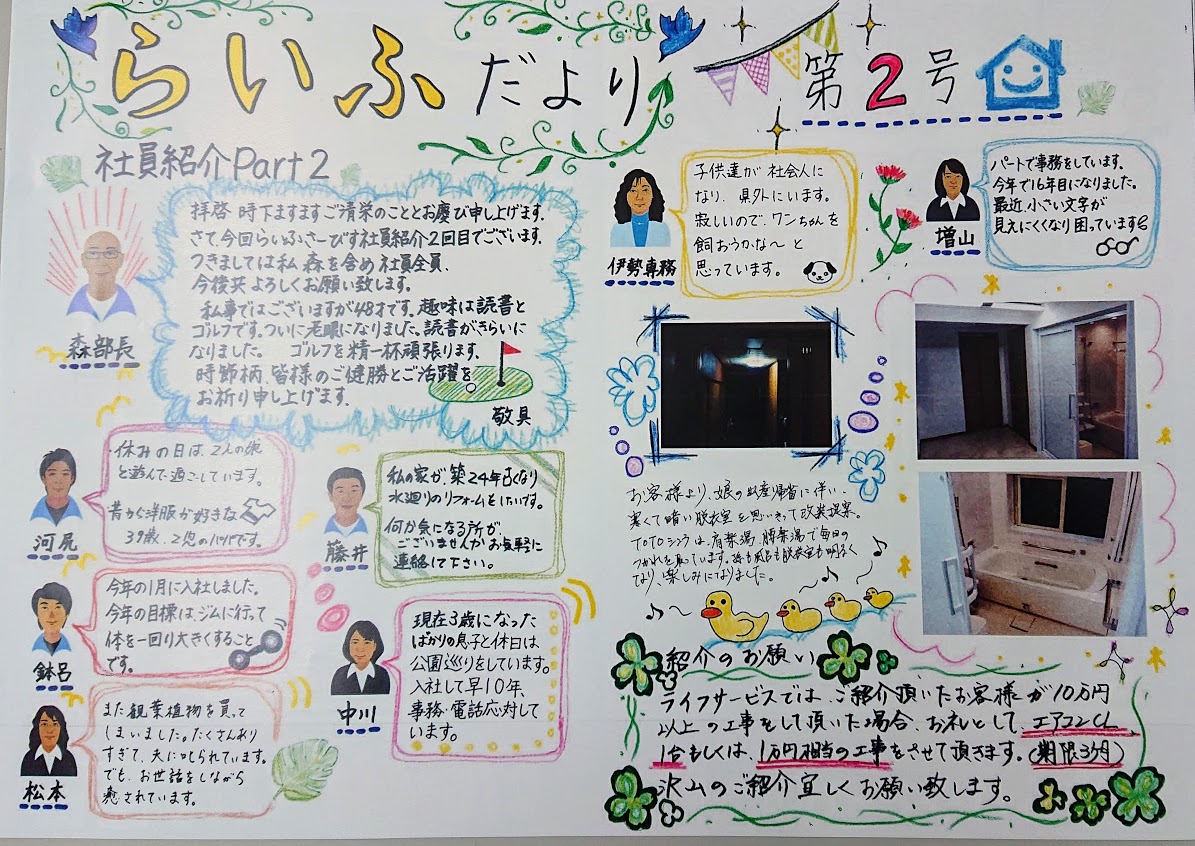 らいふだより 第2号
社員紹介Part2
拝啓 時下ますますご清栄のこととお慶び申し上げます.
さて,今回らいふさーびす社員紹介2回目でございます.
つきましては私 森を含め社員全員、
今後共よろしくお願い致します。
私事ではございますが48才です。趣味は読書と
ゴルフです。ついに老眼になりました。読書がきらいに
なりました。 ゴルフを精一杯頑張ります.
時節柄、皆様のご健勝とご活躍を
お祈り申し上げます.
敬具
森部長
休みの日は、2人の娘
と遊んで過ごしています。
昔から洋服が好きな
39歳、2児のパパです。
河尻
今年の1月に入社しました。
今年の目標は、ジムに行って
体を一回り大きくすること
です。
鉢呂
また観葉植物を買って
しまいました。たくさんあり
すぎて、夫に叱られています。
でも、お世話をしながら
癒されています。
松本
私の家が、築24年古くなり
水廻りのリフォームをしたいです。
何か気になる所が、
ございませんか お気軽に
連絡して下さい。
藤井
現在3歳になった
ばかりの息子と休日は
公園巡りをしています。
入社して早10年、
事務・電話応対して
います。
中川
子供達が社会人に
なり、県外にいます。
寂しいので、ワンちゃんを
飼おうかな～と
思っています。
伊勢専務
パートで事務をしています。
今年で16年目になりました。
最近、小さい文字が
見えにくくなり困っています
増山
お客様より、娘の出産帰省に伴い、
寒くて暗い脱衣室を思いきって改装提案。
TOTOシンラは、肩楽湯、腰楽湯で毎日の
つかれを取っています。孫もお風呂も脱衣室も明るく
なり、楽しみになりました。
紹介のお願い
ライフサービスでは、ご紹介頂いたお客様が10万円
以上の工事をして頂いた場合、お礼として、エアコンCL
1台もしくは、1万円相当の工事をさせて頂きます。(期限3ヶ月)
沢山のご紹介宜しくお願い致します。